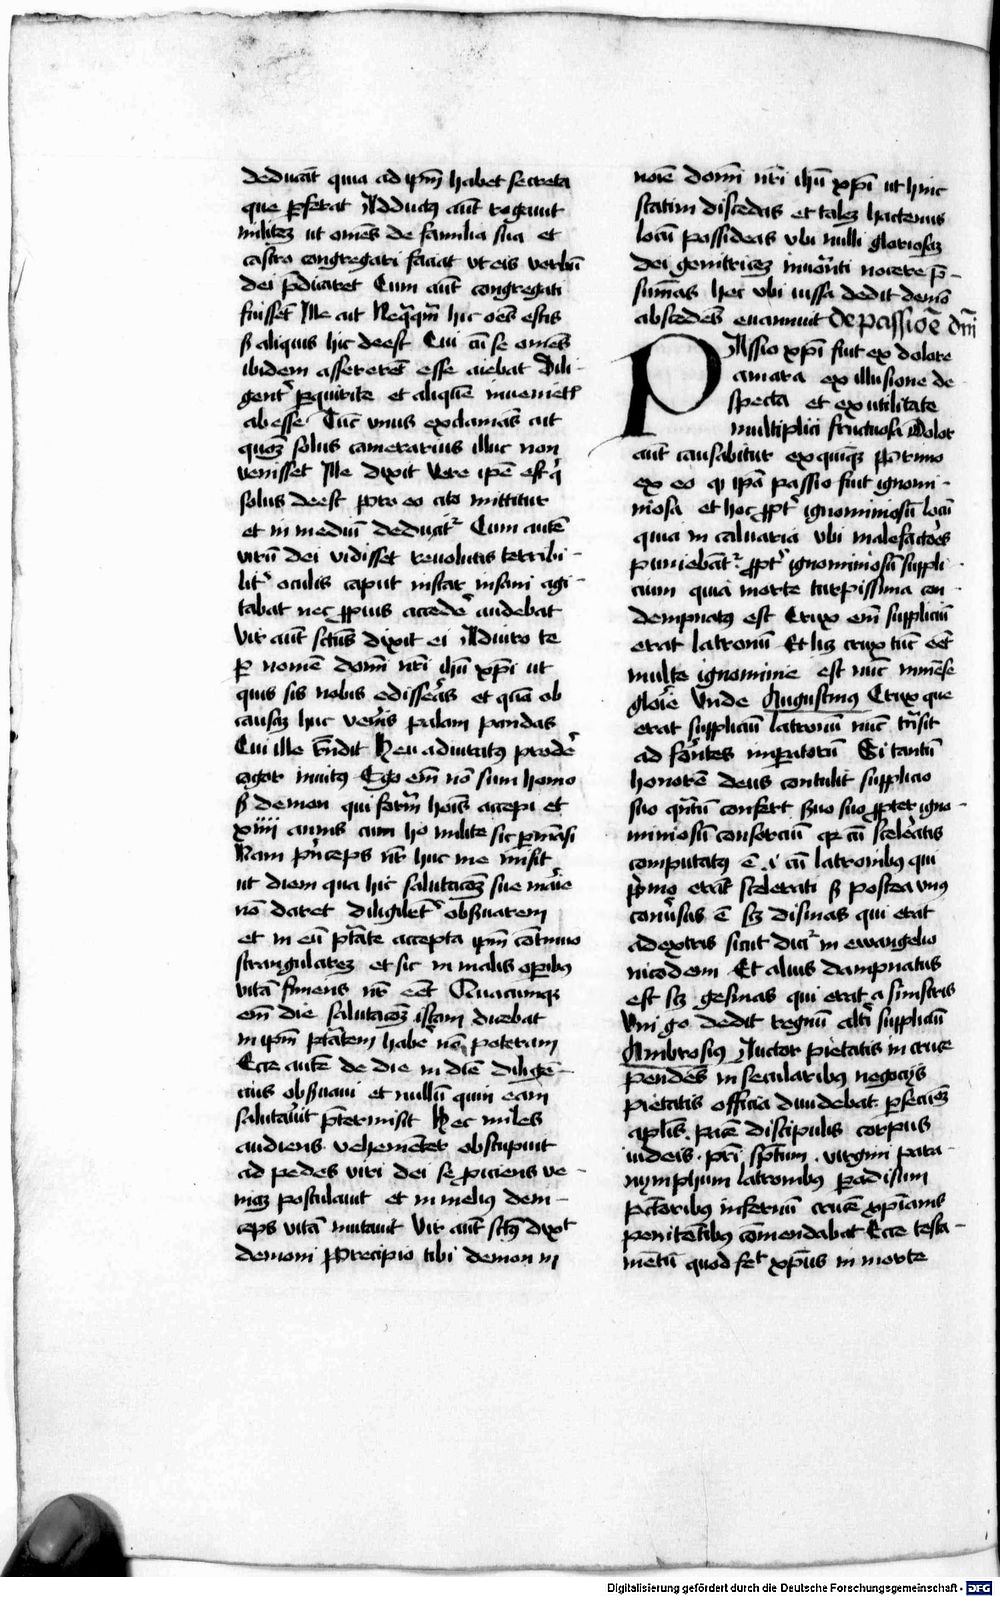 deducāt quia ad ip̄m habet secreta
que p̱ferat Adductꝰ aūt rogauit
militeꝫ ut om̄es de familia sua et
castro congregari faciat ut eis verbū
dei p̄dicaret Cum aūt congregati
fuissēt Ille ait Neq̄q̄m̄ hic oēs estis
sꝫ aliquis hic deest Cui cū se om̄es
ibidem assererēt esse aiebat Dili
gent͛ p̱quirite et aliquē inuenietꝭ
abesse Tūc unus exclamās ait
quoꝫ solus camerarius illuc non
venisset Ille dixit Vere ip̄e est q̇
solus deest Pro eo cito mittitur
et in mediū deducit͛ Cum autē
virū dei vidisset reuolutis terribi-
lit͛ oculis caput instar insani agi-
tabat nec ꝓpius accede͛ audebat
Vir aūt sctūs dixit ei Adiuro te
p̱ nomē domī nr̄i ihū xp̄i ut
quis sis nobis edisse͛as et quā ob
causaꝫ huc ven͛is palam pandas
Cui ille r̄ndit Heu adiuratꝰ prode͛
cogor inuitꝰ Ego em̄ nō sum homo
sꝫ demon qui form̄ hoīs accepi et
xiiii annis cum hō milite sic p̱māsi
Nam p̄nceps nr̄ huc me misit
ut diem qua hic salutac̄oꝫ sue m̄ie
nō daret diligēt͛ obs̱uarem
et in eū ptāte accepta ip̄m cōtinuo
strangulareꝫ et sic in malis op̱ibꝰ
vitā finiens nr̄ eēt Quacumqꝫ
em̄ die salutac̄oꝫ istam dicebat
in ip̄m ptātem habe͛ nō poteram
Ecce autē de die in diē diligē-
cius obs̱uaui et nullū quin eam
salutau͛it p̄termisit Hec miles
audiens vehemēter obstupuit
ad pedes viri dei se ꝓiciens ve-
niaꝫ postulauit et in meliꝰ dein-
ceps vitā mutauit Vir aūt sctꝰ dixͭ
demoni Precipio tibi demon in
noīe domī nr̄i ihū xp̄i ut hinc
statim discedas et taleꝫ hactenus
locū possideas ubi nulli gloriosaꝫ
dei genitriceꝫ inuocanti nocere p̄-
sumas hec ubi iussa dedit demō
abscedēs euanuit De passiōe dn̄i
PAssio xp̄i fuit ex dolore
amara ex illusione de-
specta et ex utilitate
multiplici fructuosa Dolor
aūt causabitur ex quiqꝫ Primo
ex eo ꝙ ip̄a passio fuit ignomi-
niosa et hoc ꝓpt͛ ignominiosū locū
quia in caluaria ubi malefactōes
puniebāt͛ ꝓpt͛ ignominiosū suppli-
cium quia morte turpissima con-
dempnatꝰ est Crux em̄ suppliciū
erat latronū Et lꝫ crux tūc eēt
multe ignominie est nūc īmēse
glorie Unde Augustinus Crux que
erat suppliciū latronū nūc tr̄nsit
ad frōntes imperatorū Si tantū
honorē deus contulit supplicio
suo q̄ntū confert suo ꝓpter igno-
miniosū consorciū ꝙ cū sceleratis
computatꝰ ē .i. cū latronibꝰ qui
primo erāt scelerati sꝫ postea unꝰ
conu͛sus ē sꝫ dismas qui erat
ad extris sicut dicit͛ in ewangelio
nicodem Et alius dampnatus
est sꝫ gesmas qui erat a sinistris
Vni g̊ dedit regnū alt͛i suppliciū
Ambrosius Auctor pietatis in cruce
pendēs in secularibꝰ negocijs
pietatis officia diuidebat p̱secucōꝫ
aplīs. pacē discipulis corpus
iudeis. pr̄i spīrtum. virgini para-
nymphum latronibꝰ paradisum
pc̄toribus infernū crucē xpīanis
penitentibꝰ cōmendabat Ecce testa-
mentū quod fecͭ xp̄us in morte
Digitalisierung gefördert durch die Deutsche Forschungsgemeinschaft - DFG